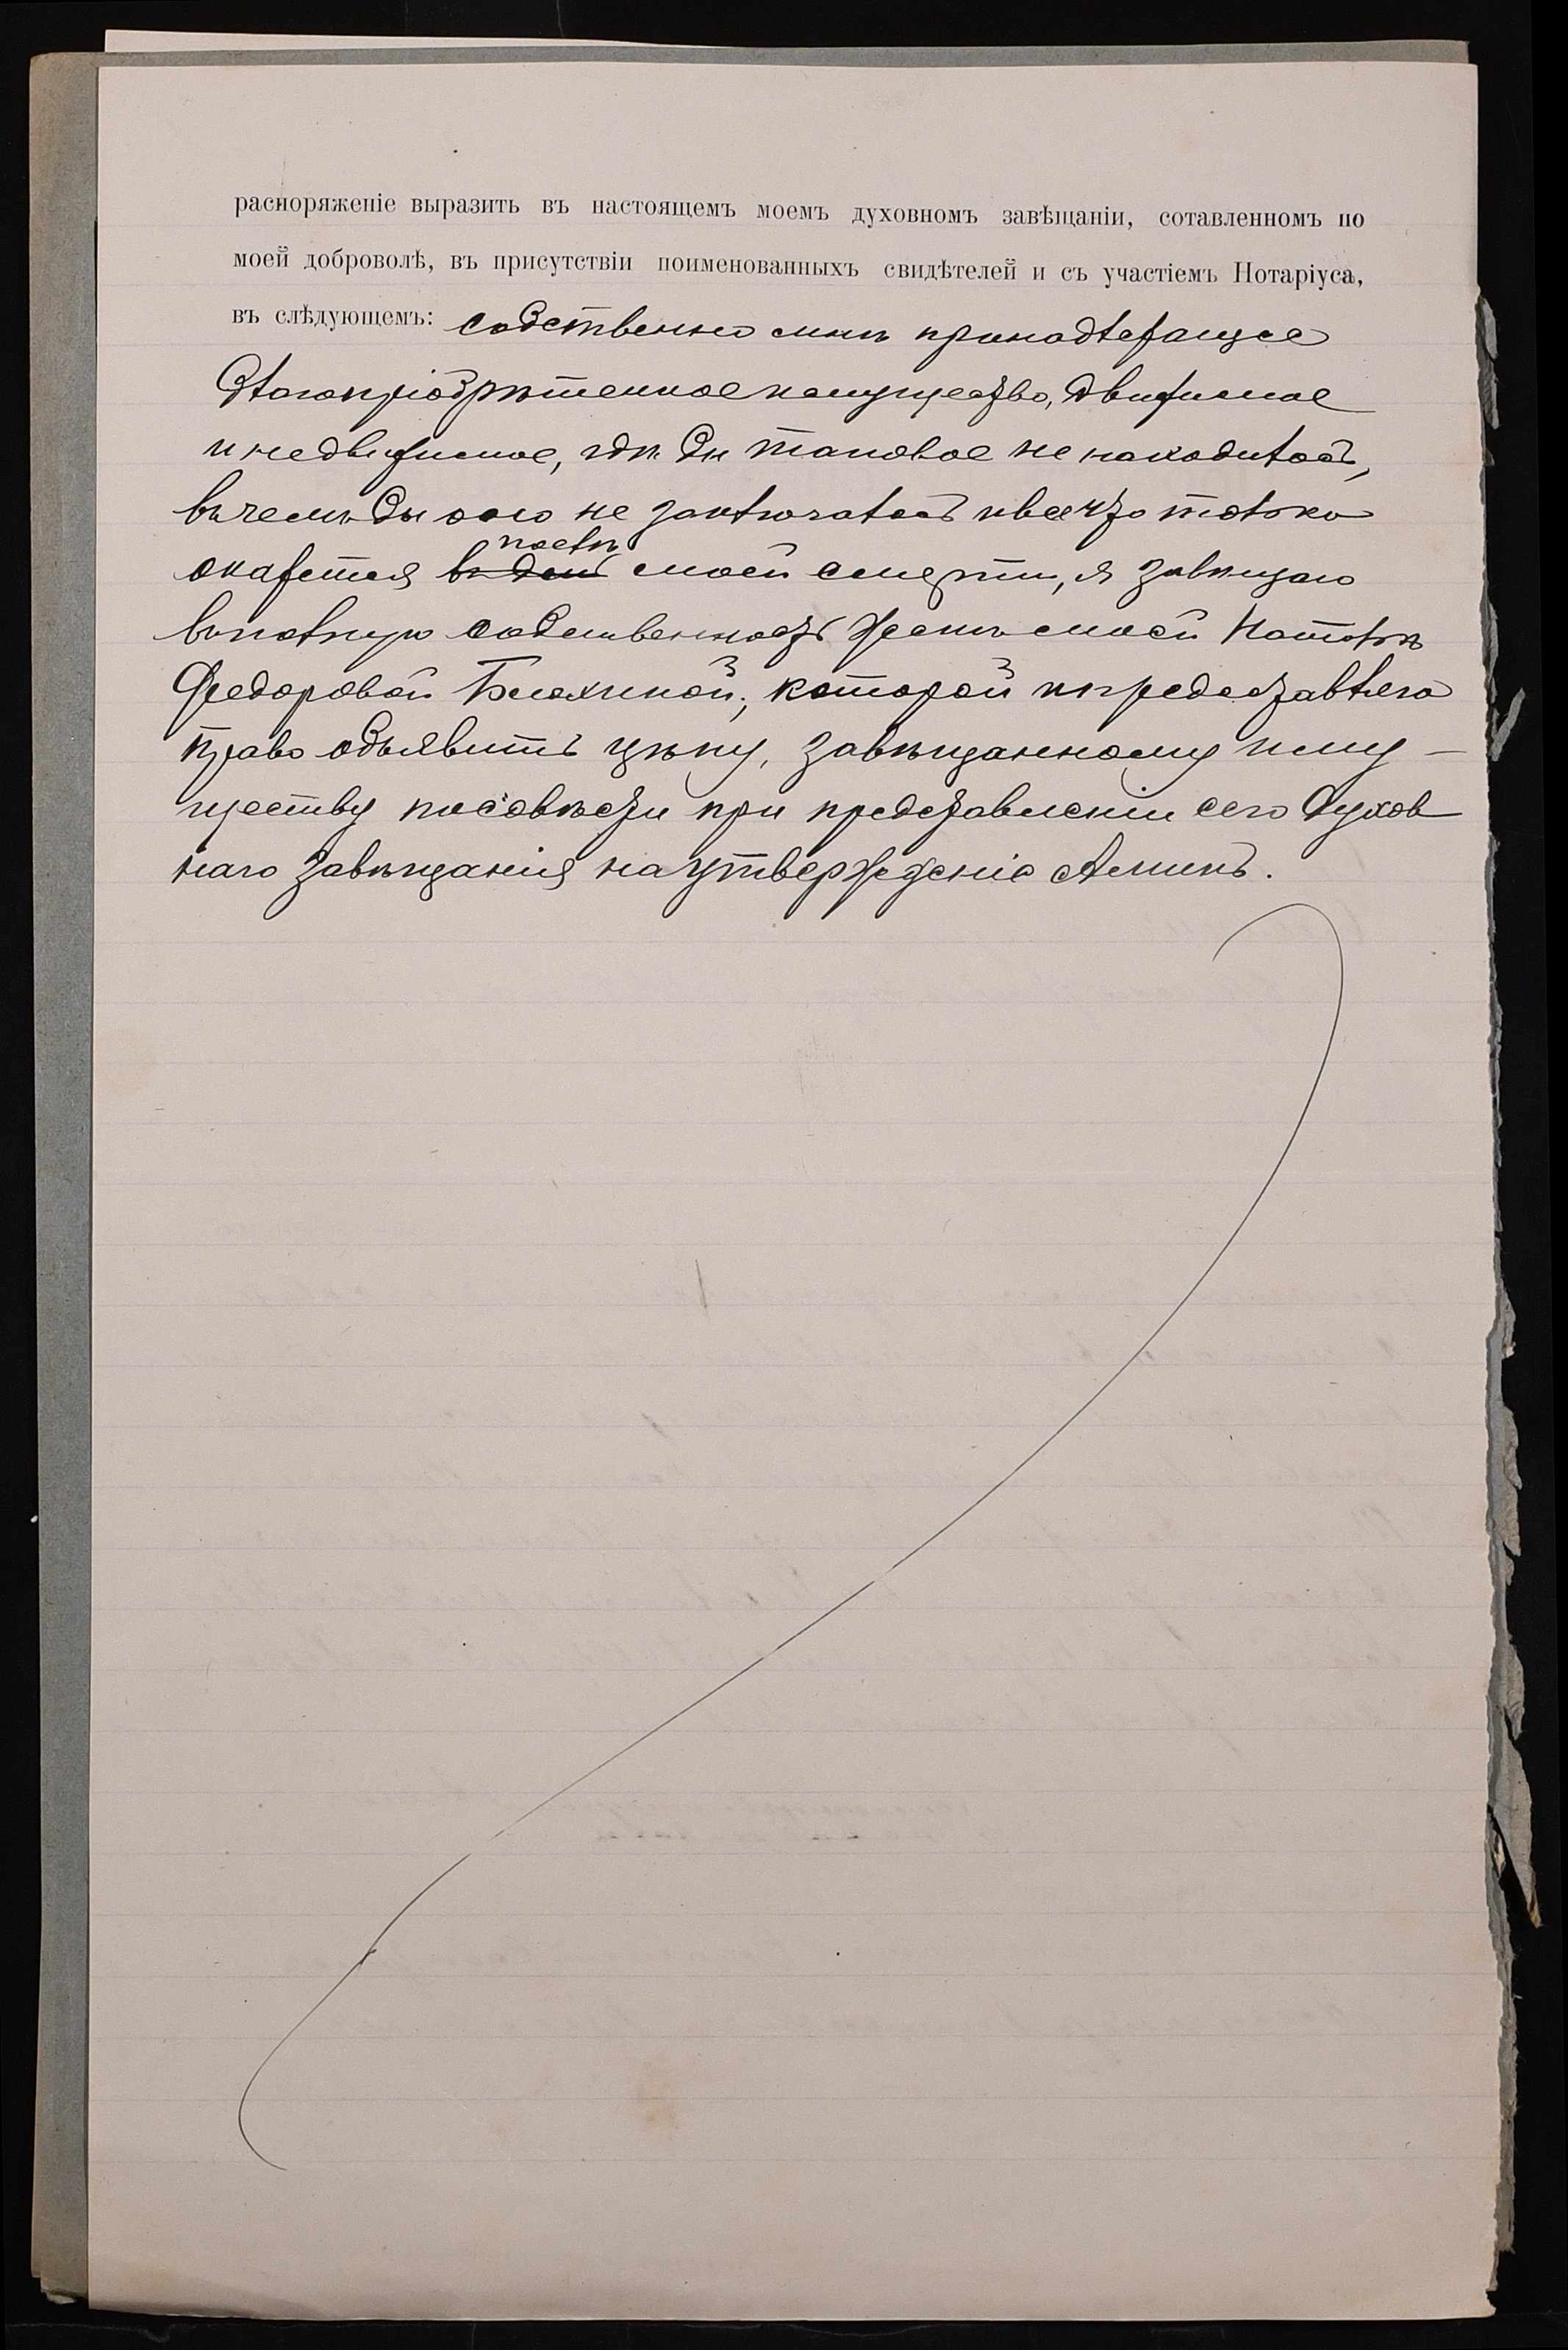 распоряженіе выразить въ настоящемъ моемъ духовномъ завѣщаніи, сотавленномъ по
моей доброволѣ, въ присутствіи поименованныхъ свидѣтелей и съ участіемъ Нотаріуса,
въ слѣдующемъ: собственно мнѣ принадлежащее
благопріобрѣтенное имущество, движимое
и недвижимое, гдѣ бы таковое не находилось,
въ чемъ бы оно не заключалось и все что только
послѣ
окажется въ день моей смерти, я завѣщаю
въ полную собственность женѣ моей Натальѣ
Федоровой Блохиной, которой и предоставляю
право объявить цѣну, завѣщанному иму-
ществу по совѣсти при представленіи сего духов
наго завѣщанія на утвержденіе Аминь.